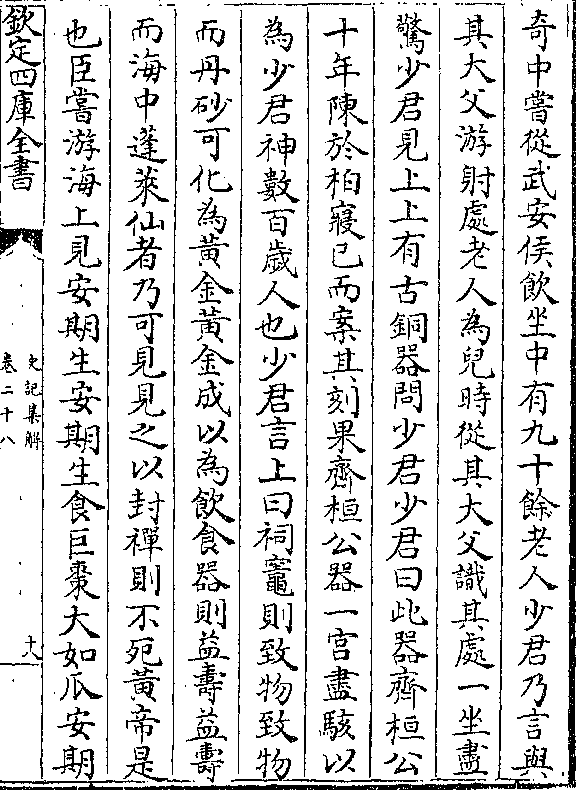 奇中嘗從武安侯飲坐中有九十餘老人少君乃言與
其大父游射處老人為兒時從其大父識其處一坐盡
驚少君見上上有古銅器問少君少君曰此器齊桓公
十年陳於柏寢已而案其刻果齊桓公器一宫盡駭以
為少君神數百歲人也少君言上曰祠竈則致物致物
而丹砂可化為黃金黃金成以為飲食器則益壽益壽
而海中蓬萊仙者乃可見見之以封禪則不死黃帝是
也臣嘗游海上見安期生安期生食巨棗大如瓜安期
欽定四庫全書
史記集解
卷二十八
十九